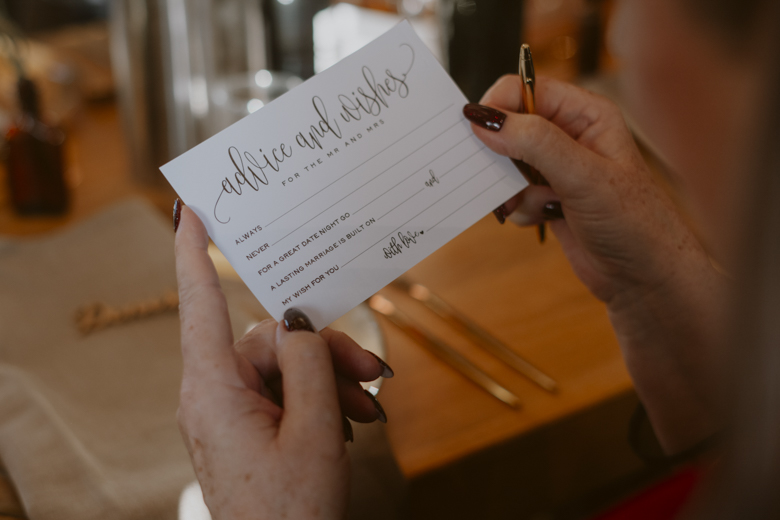 advice and wishes
FOR THE MR AND MRS
ALWAYS
NEVER
FOR A GREAT DATE NIGHT GO
A LASTING MARRIAGE IS BUILT ON and
MY WISH FOR YOU
with love,